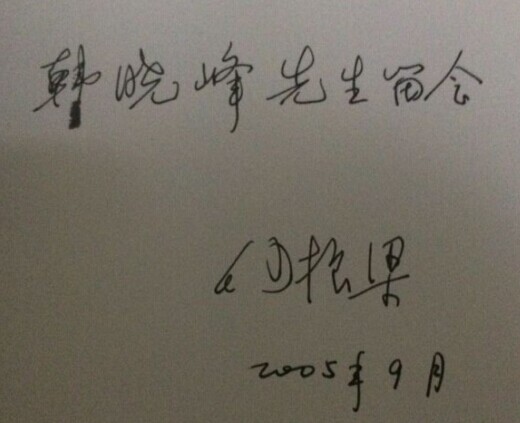 韩晓峰先生留念
2005年9月